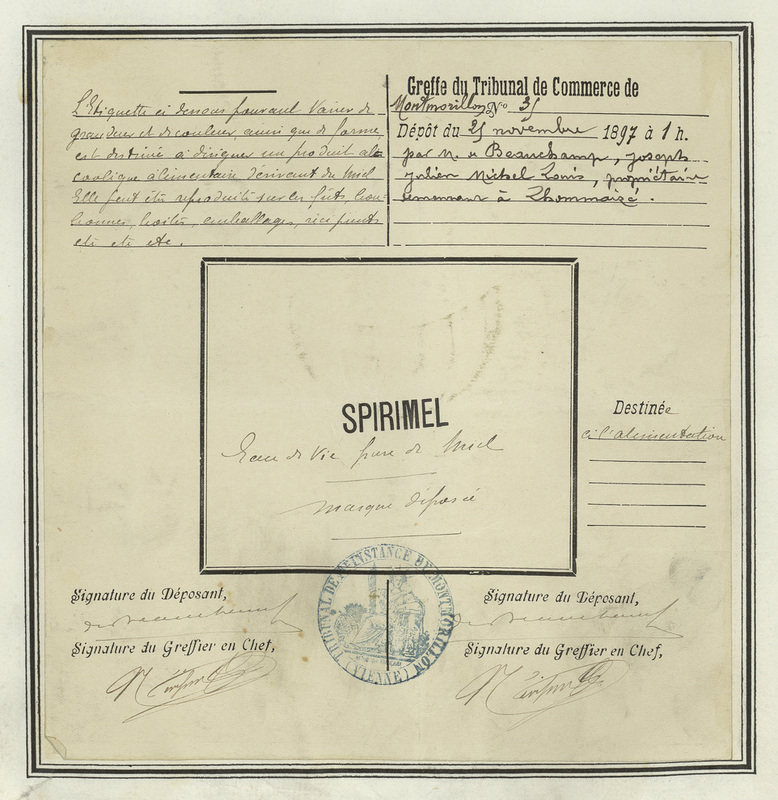 L'Etiquette ci dessus pouvant varier de
grandeur et de couleur ainsi que de forme
est destinée à désigner un produit al-
coolique alimentaire dérivant du miel
Elle peut être reproduite sur les fûts, bon-
bonnes, boîtes, emballages, récipients
etc etc etc.
Greffe du Tribunal de Commerce de
Montmorillon No
Dépôt du 25 novembre 1897 à 1 h.
par M. de Beauchamp, Joseph
Julien Michel Louis, propriétaire
demeurant à Lhommaizé.
SPIRIMEL
Eau de Vie pure de Miel
marque déposée
Destinée
à l'alimentation
TRIBUNAL DE 1RE INSTANCE DE MONTMORILLON
(VIENNE)
Signature du Déposant,
de Beauchamp
Signature du Greffier en Chef,
Signature du Déposant,
de Beauchamp
Signature du Greffier en Chef,